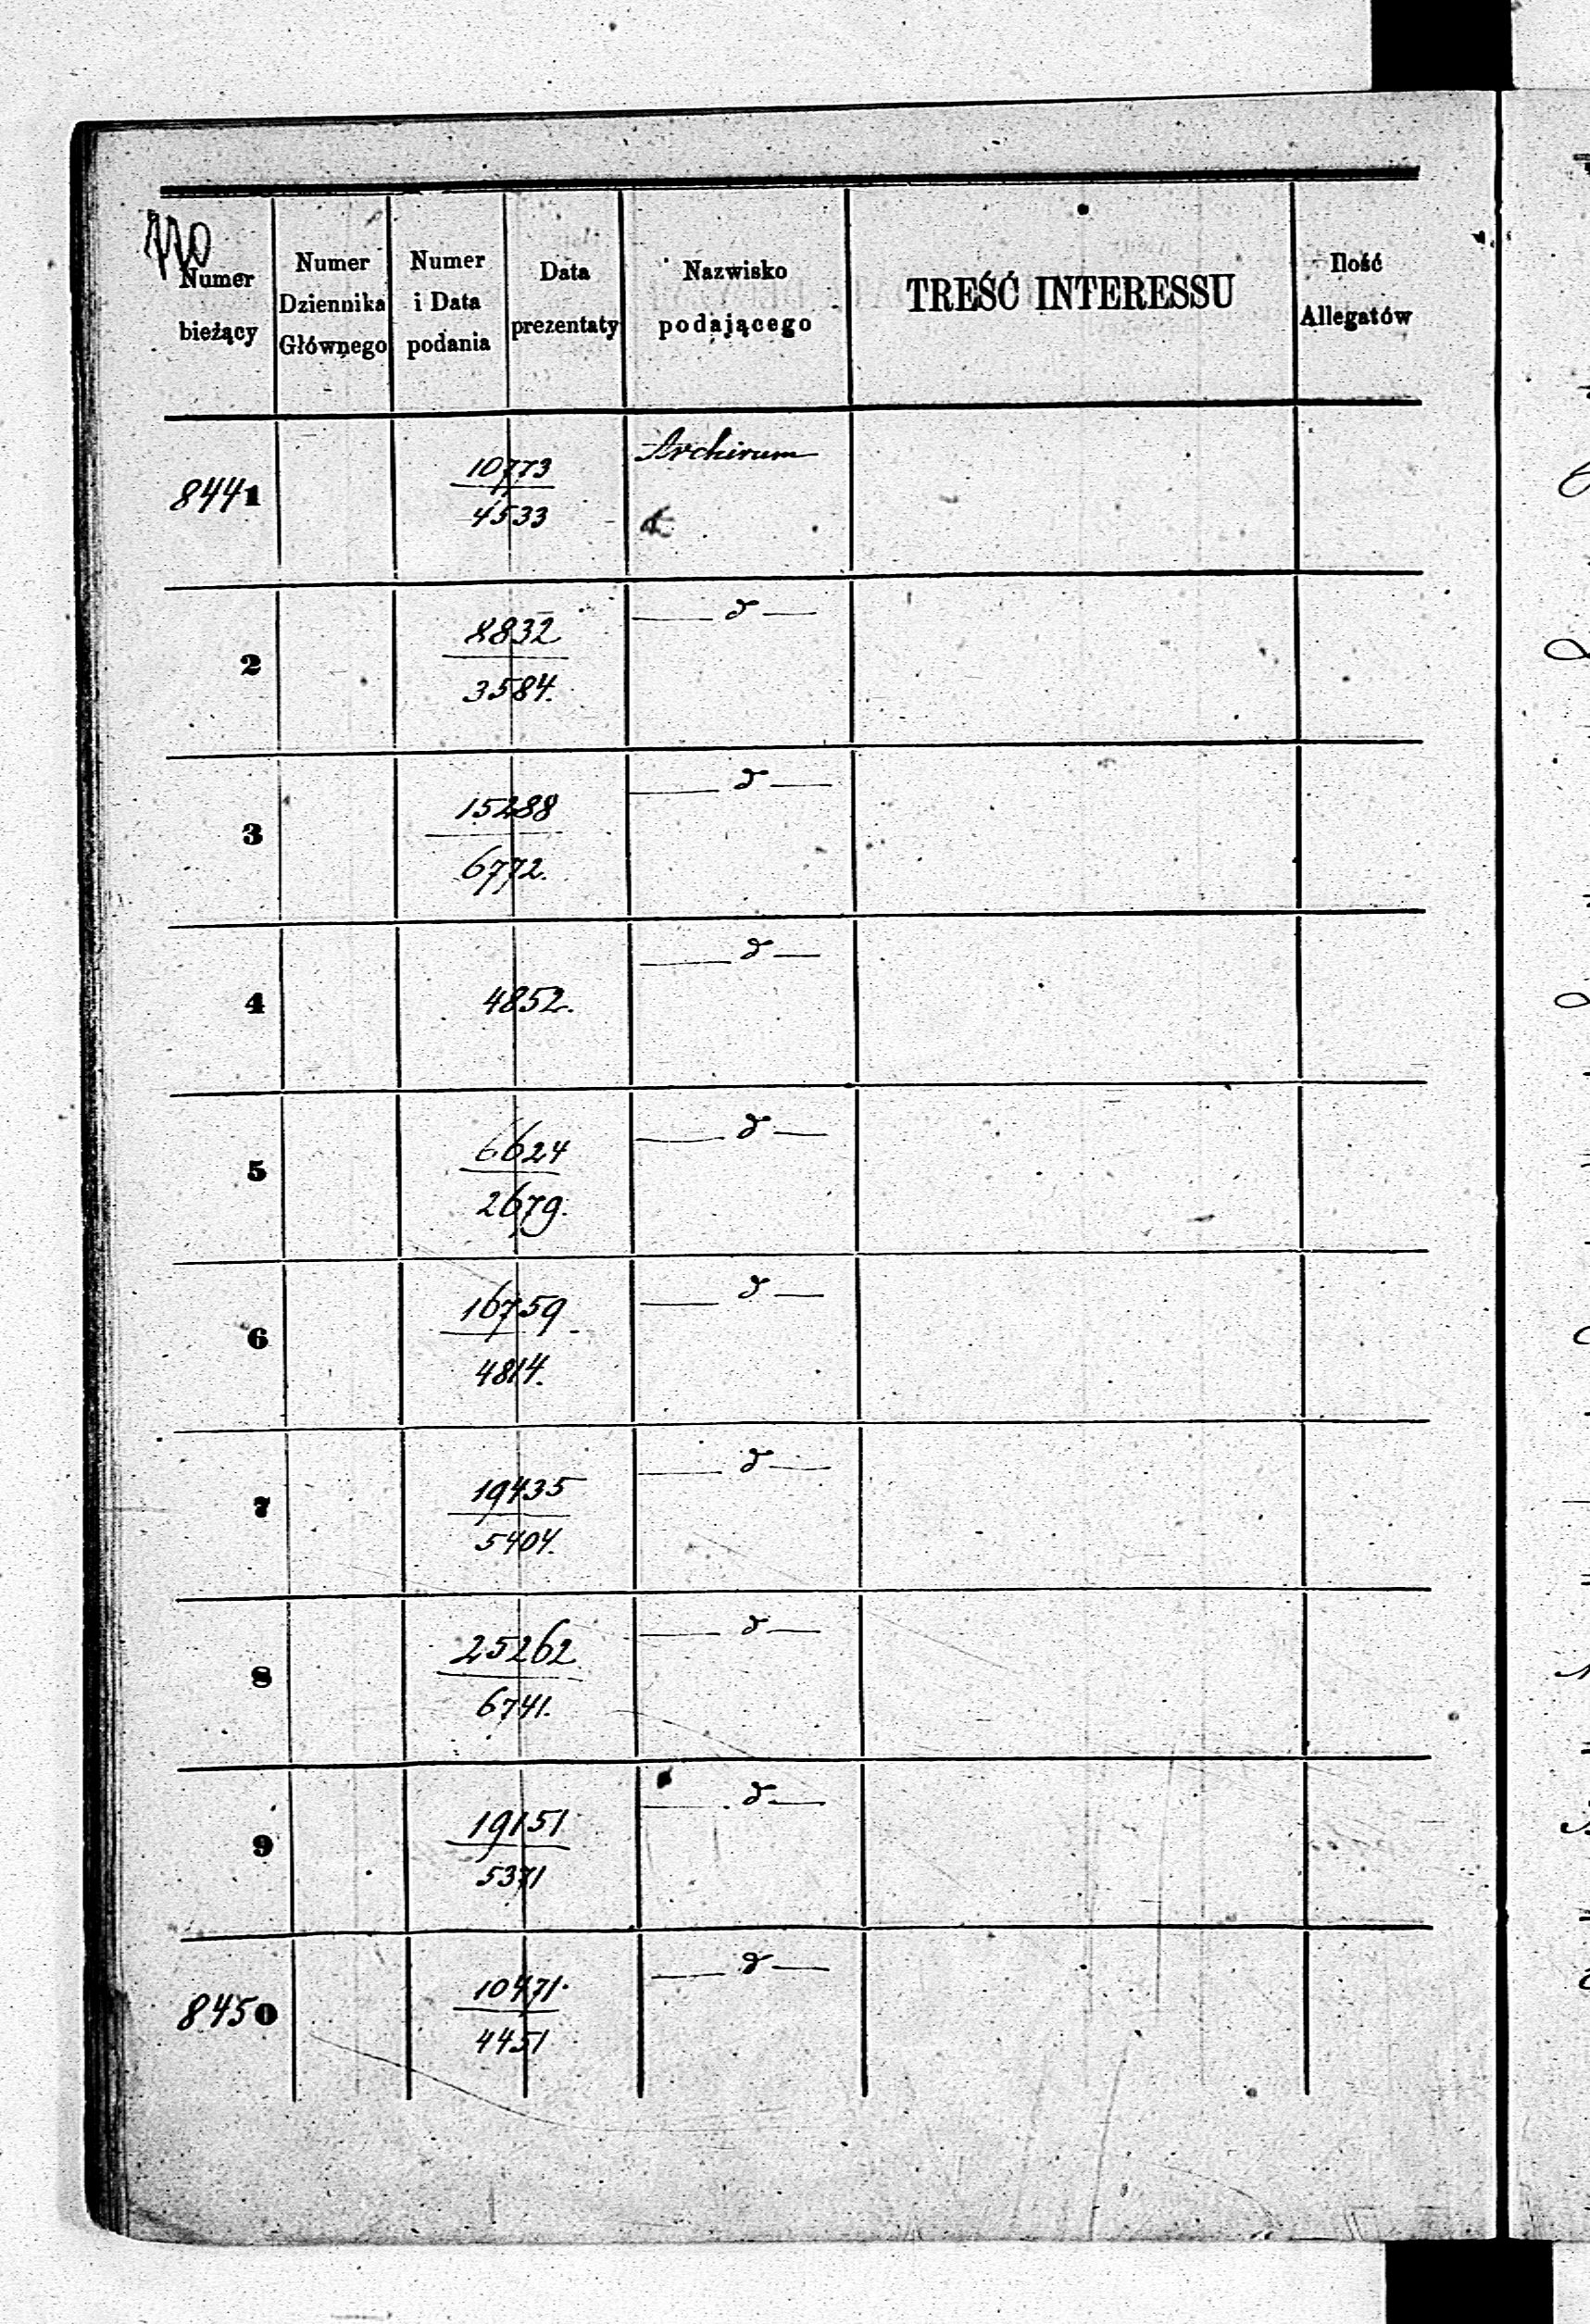 770
Numer bieżący
Numer Dziennika Głównego
Numer i Data podania
Data prezentaty
Nazwisko podającego
TREŚĆ INTERESSU
Ilość Allegatów
8441 10773 Archivum
4533
2 8832 — d —
3584.
3 15288 — d —
6772.
4 4852. — d —
5 6624 — d —
2679.
6 16759 — d —
4814.
7 19435 — d —
5404.
8 25262 — d —
6741.
9 19151 — d —
5371
8450 10471. — d —
4451